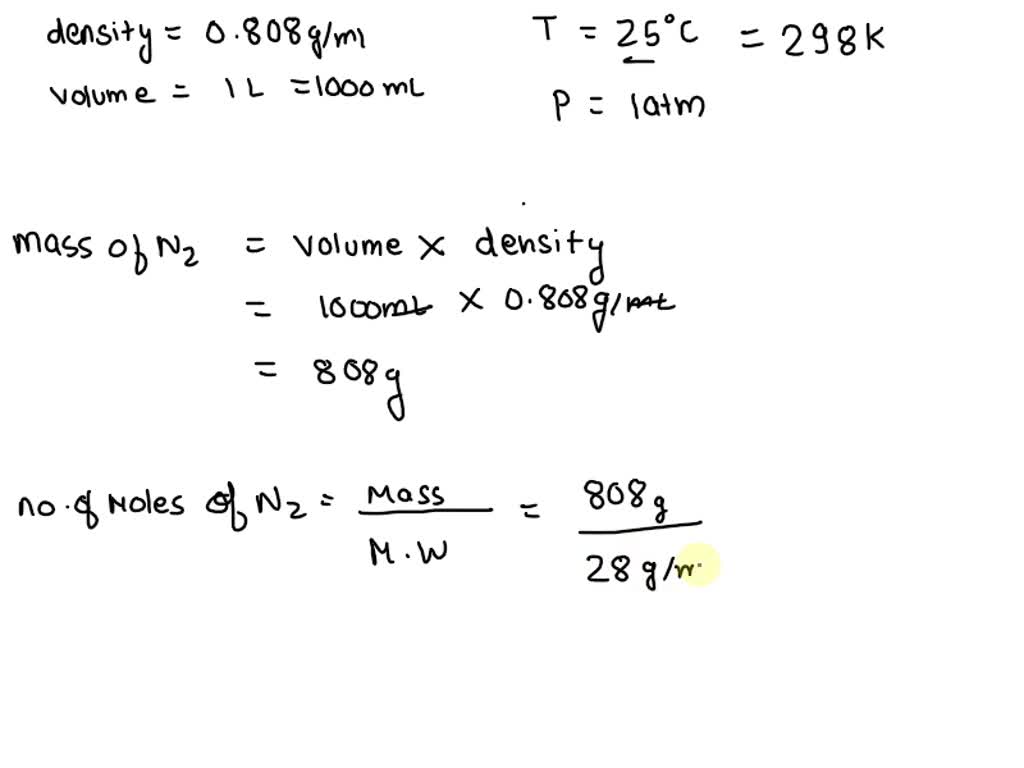 density = 0.808g/ml
volume = 1L = 1000mL
T = 25°C = 298K
P = 1atm
mass of N2 = volume × density
= 1000mL × 0.808g/mL
= 808g
no. of Moles of N2 = Mass / M.W = 808g / 28g/m